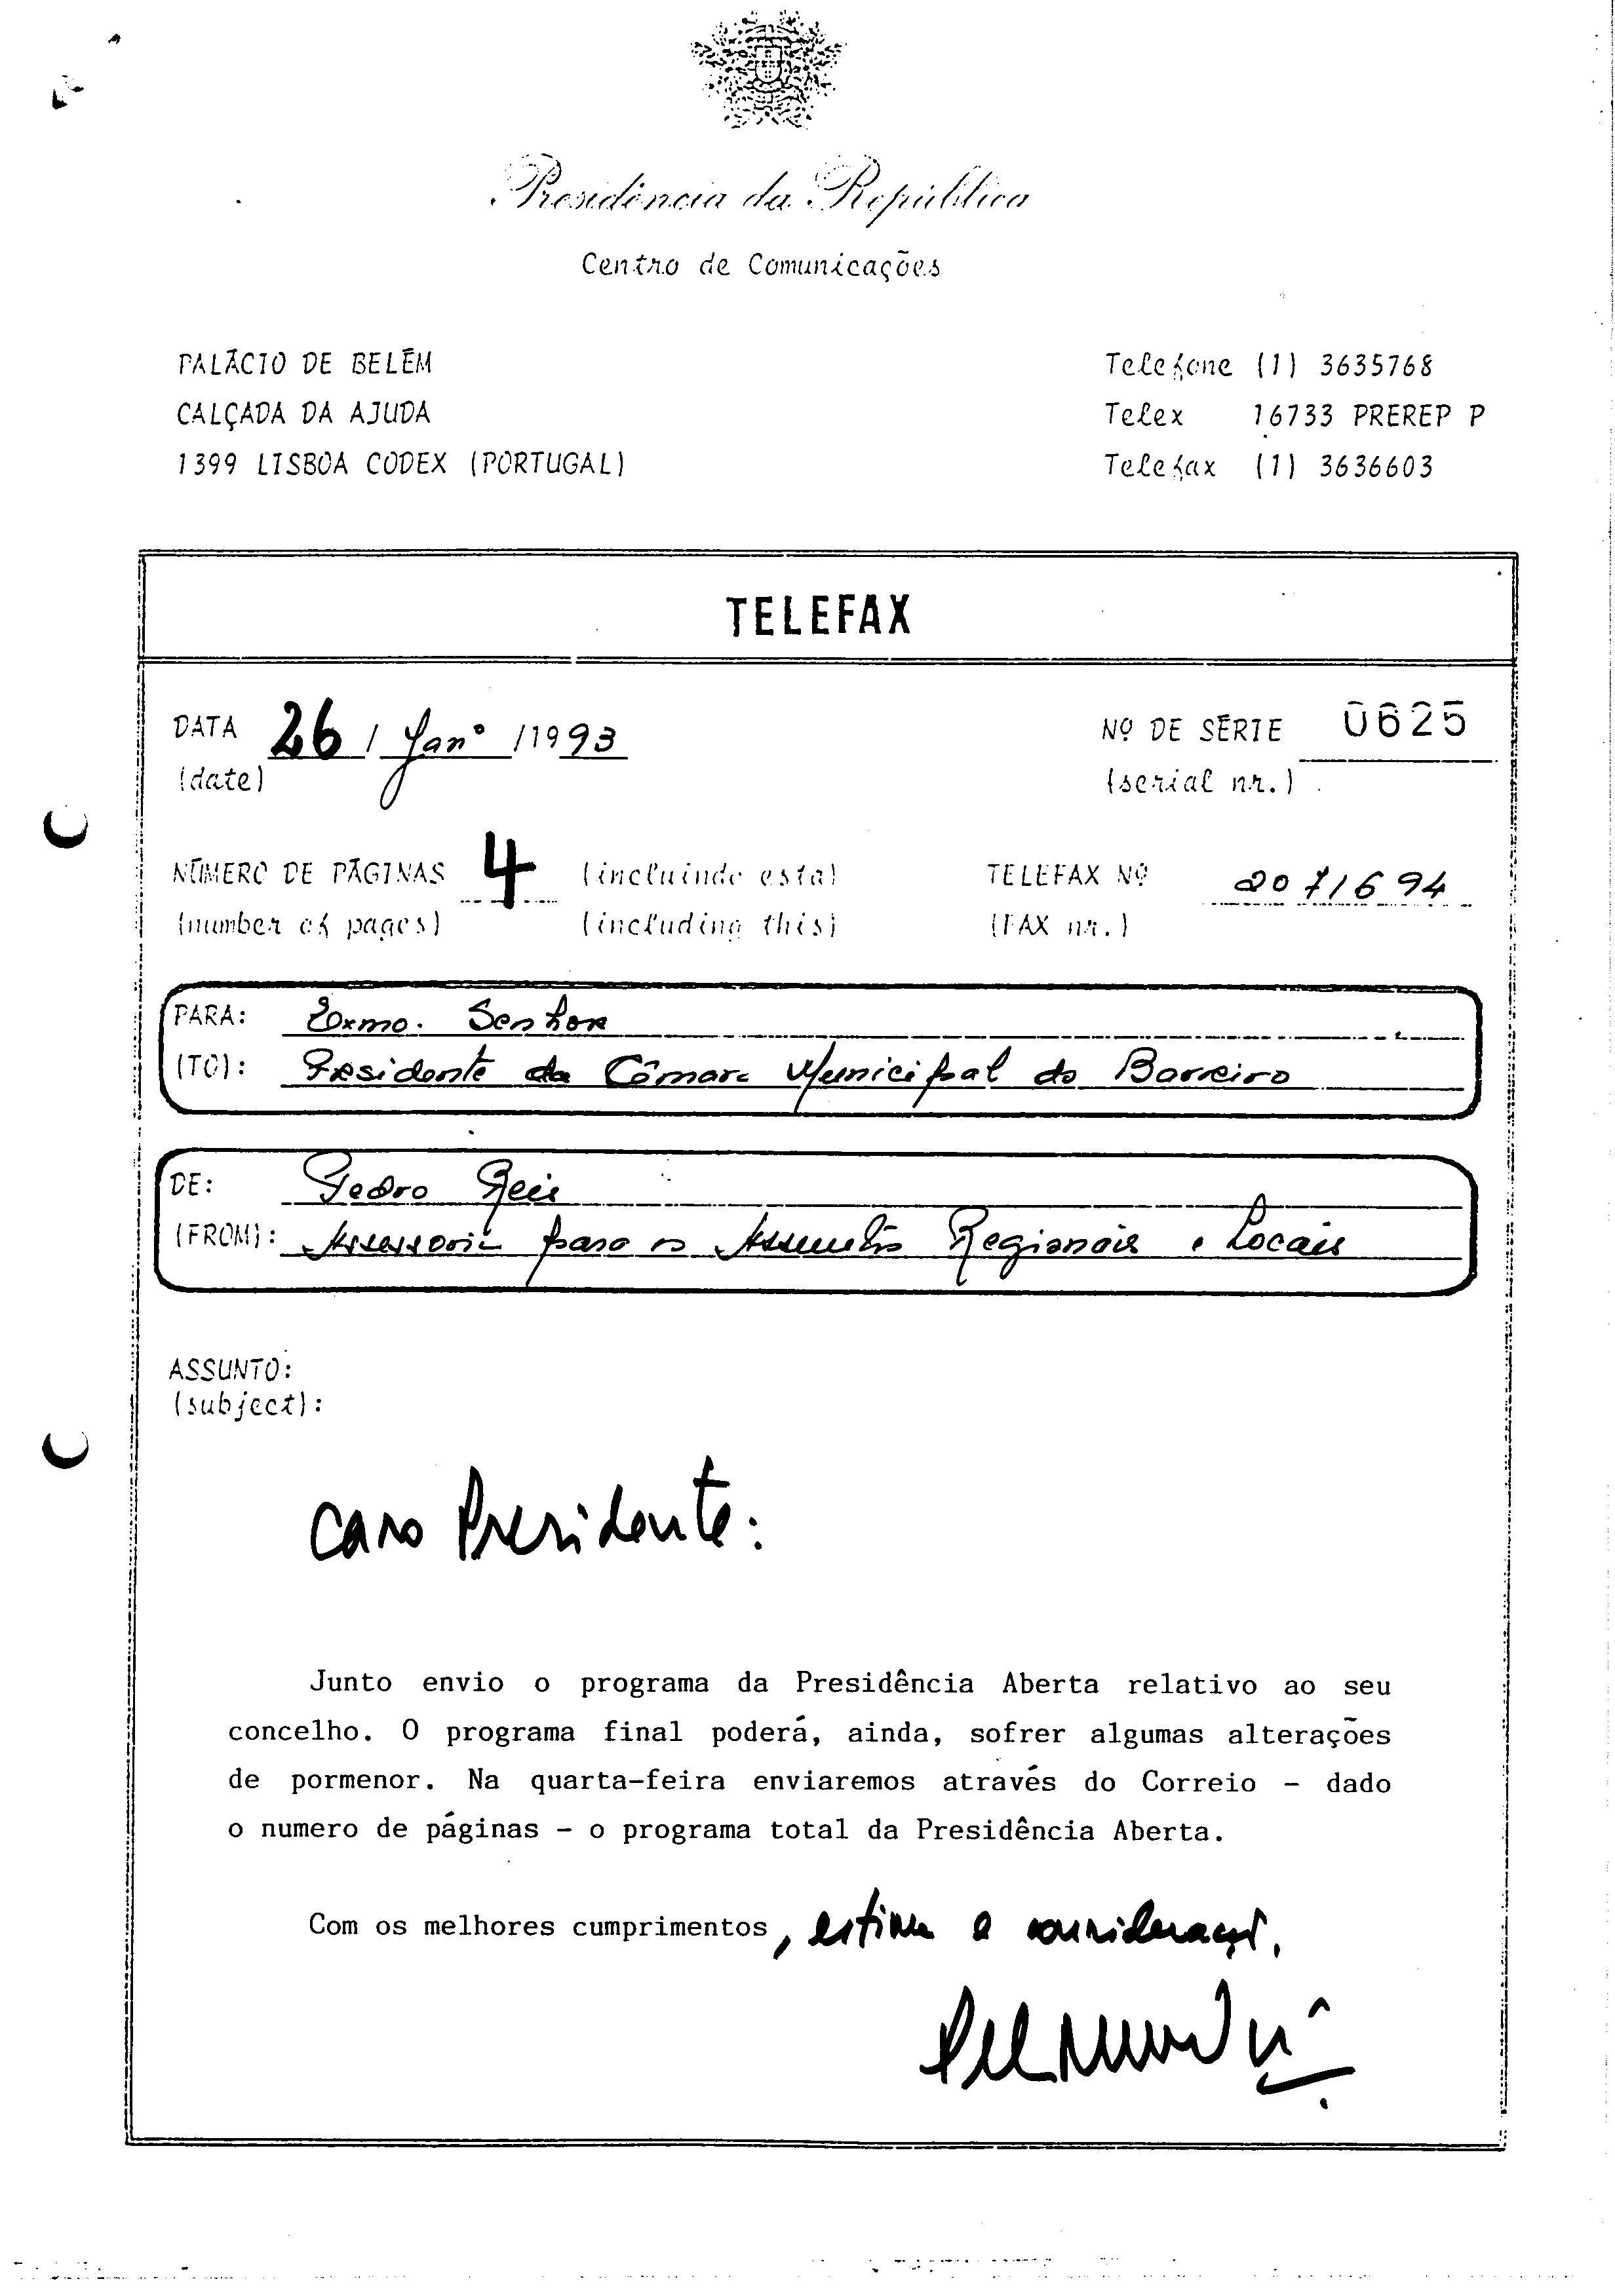 Presidência da República
Centro de Comunicações
PALÁCIO DE BELÉM
CALÇADA DA AJUDA
1399 LISBOA CODEX (PORTUGAL)
Telefone (1) 3635768
Telex 16733 PREREP P
Telefax (1) 3636603
TELEFAX
DATA 26 / Janº /1993
(date)
Nº DE SÉRIE 0625
(serial nr.)
NÚMERO DE PÁGINAS 4 (incluindo esta)
(number of pages) (including this)
TELEFAX Nº 2071694
(FAX nr.)
PARA: Exmo. Senhor
(TO): Presidente da Câmara Municipal do Barreiro
DE: Pedro Reis
(FROM): Assessoria para os Assuntos Regionais e Locais
ASSUNTO:
(subject):
Caro Presidente:
Junto envio o programa da Presidência Aberta relativo ao seu
concelho. O programa final poderá, ainda, sofrer algumas alterações
de pormenor. Na quarta-feira enviaremos através do Correio - dado
o numero de páginas - o programa total da Presidência Aberta.
Com os melhores cumprimentos, estima e consideração,